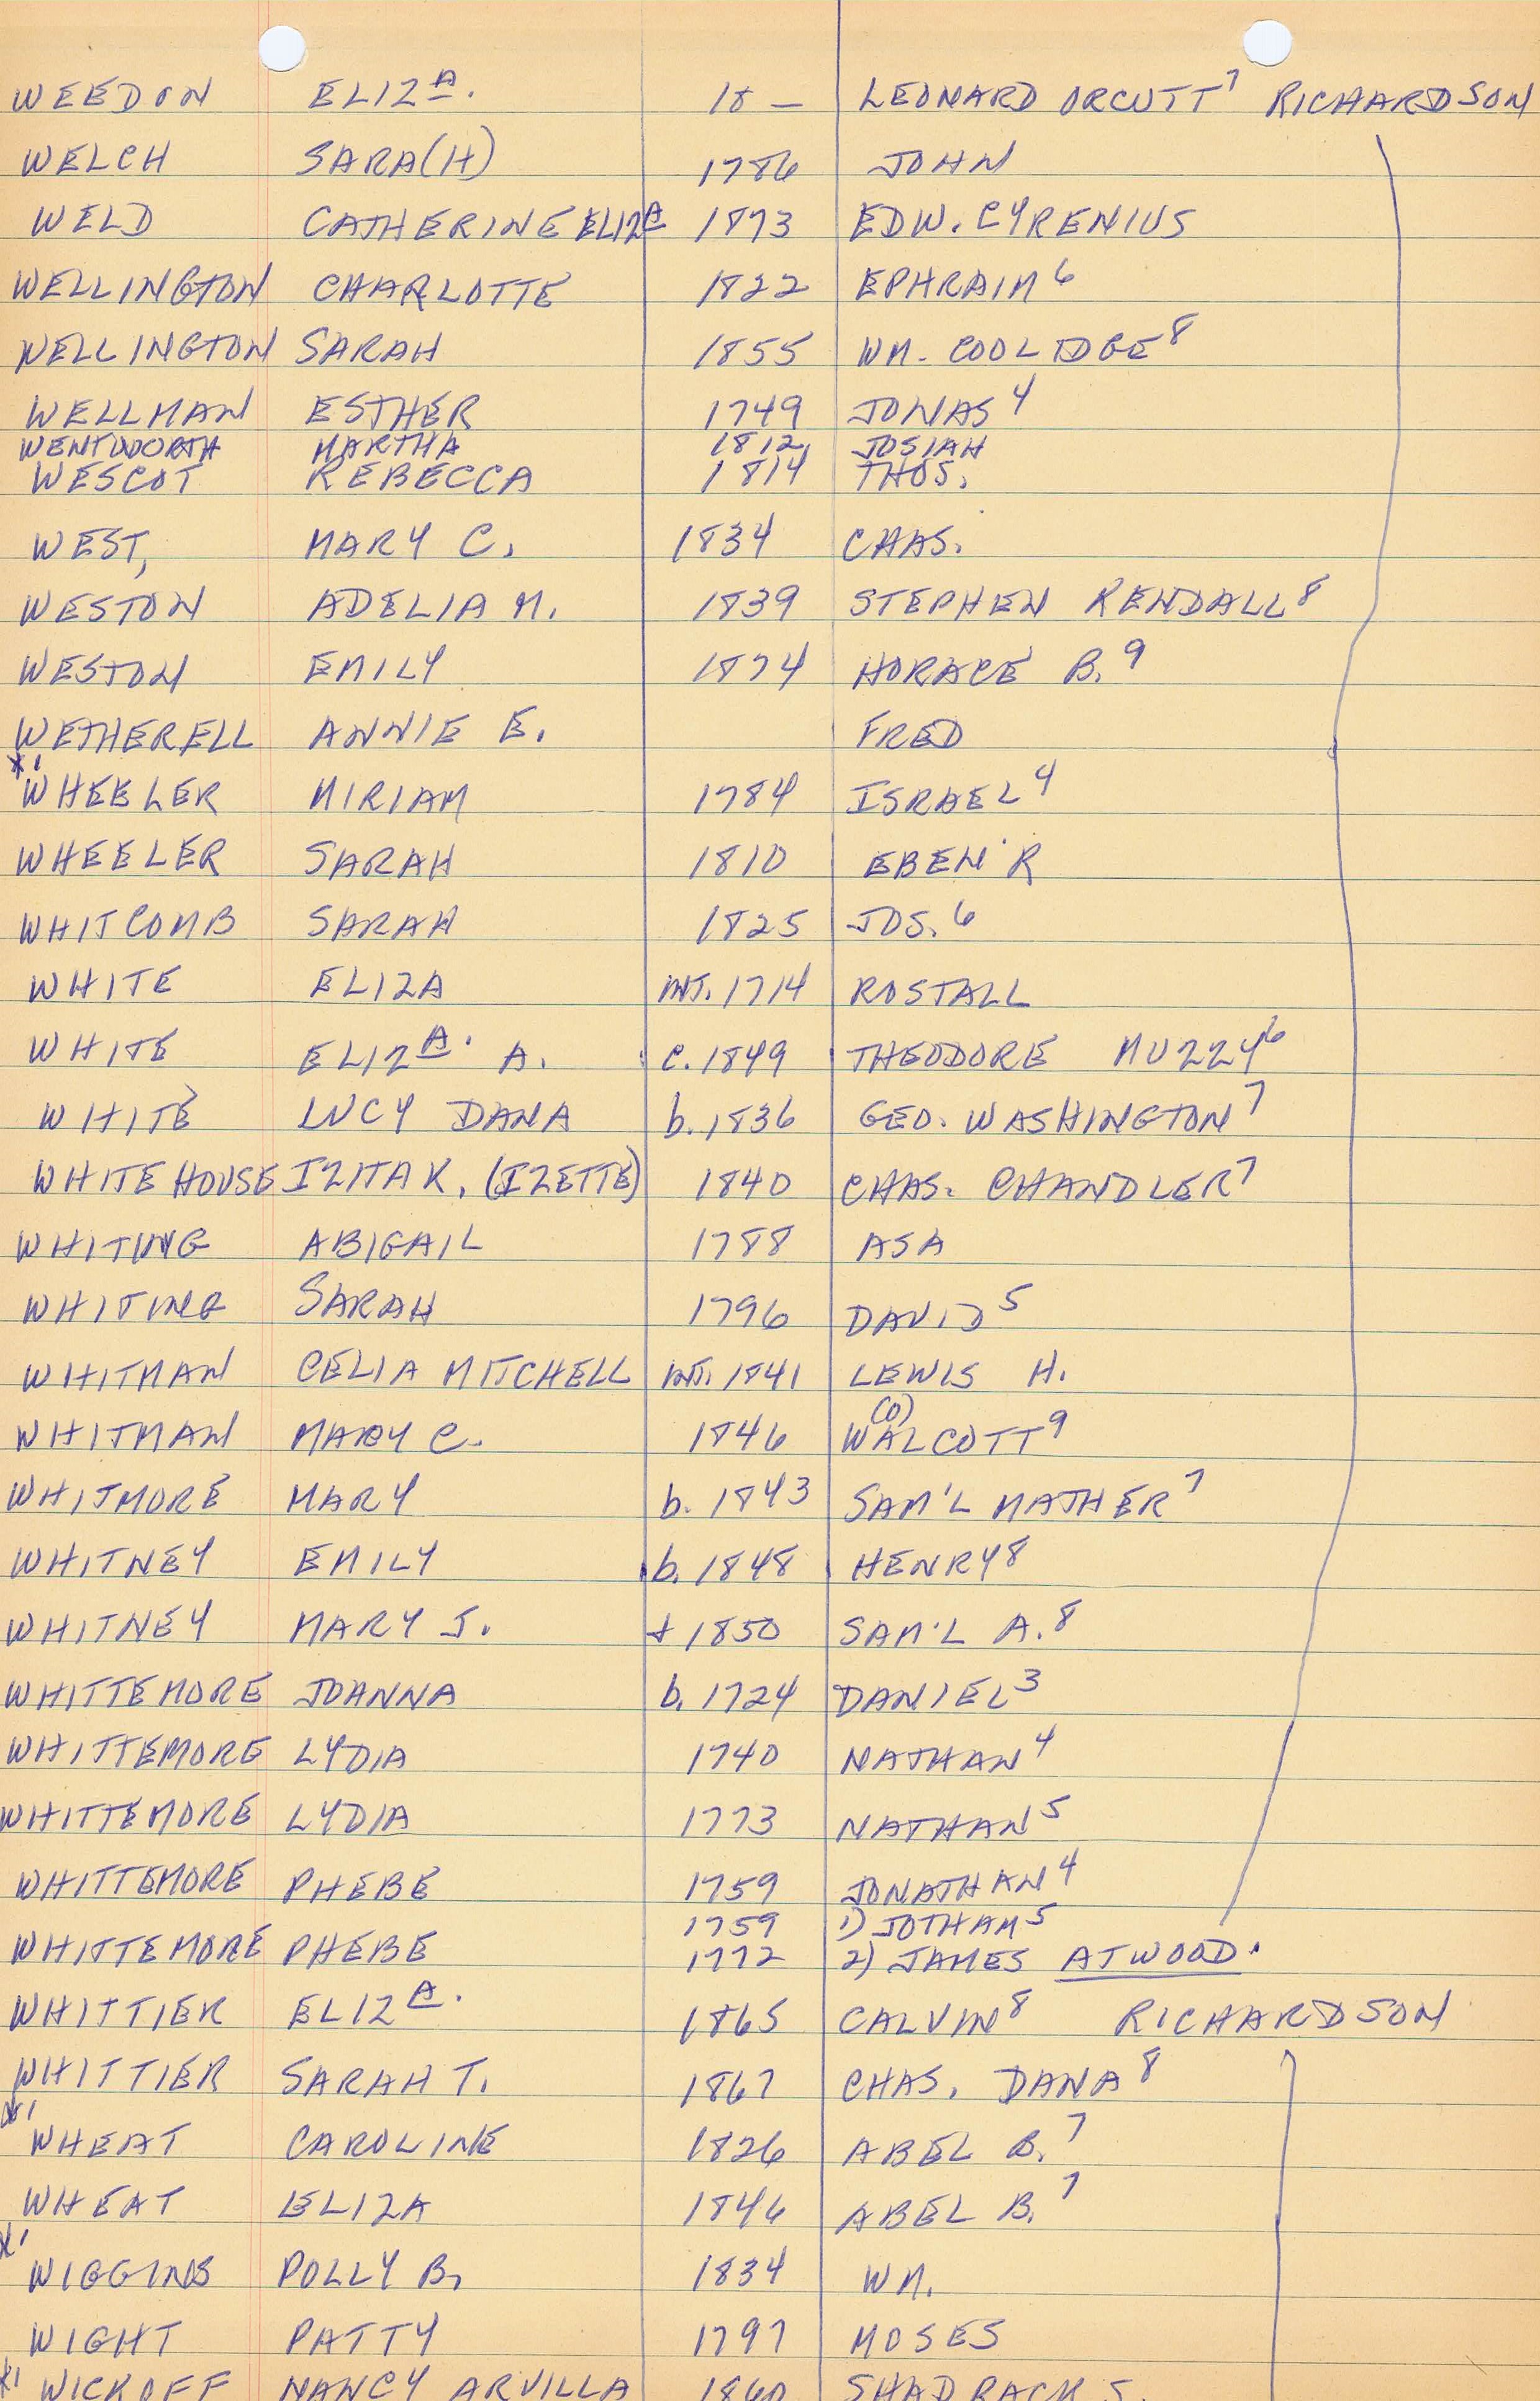 WEEDON ELIZA. 18 — LEONARD ORCUTT7 RICHARDSON
WELCH SARA(H) 1786 JOHN
WELD CATHERINE ELIZA 1873 EDW. CYRENIUS
WELLINGTON CHARLOTTE 1822 EPHRAIM6
WELLINGTON SARAH 1855 WM. COOLIDGE8
WELLMAN ESTHER 1749 JONAS4
WENTWORTH MARTHA 1812 JOSIAH
WESCOT REBECCA 1814 THOS.
WEST, MARY C. 1834 CHAS.
WESTON ADELIA M. 1839 STEPHEN RENDALL8
WESTON EMILY 1874 HORACE B.9
WETHERELL ANNIE E. FRED
*' WHEELER MIRIAM 1784 ISRAEL4
WHEELER SARAH 1810 EBEN'R
WHITCOMB SARAH 1825 JOS.6
WHITE ELIZA INT. 1714 ROSTALL
WHITE ELIZA. A. c. 1849 THEODORE MUZZY6
WHITE LUCY DANA b. 1836 GEO. WASHINGTON7
WHITEHOUSE IZITA K. (IZETTE) 1840 CHAS. CHANDLER7
WHITING ABIGAIL 1788 ASA
WHITING SARAH 1796 DAVID5
WHITMAN CELIA MITCHELL INT. 1841 LEWIS H.
(O)
WHITMAN MARY C. 1846 WALCOTT9
WHITMORE MARY b. 1843 SAM'L MATHER7
WHITNEY EMILY b. 1848 HENRY8
WHITNEY MARY J. + 1850 SAM'L A.8
WHITTEMORE JOANNA b. 1724 DANIEL3
WHITTEMORE LYDIA 1740 NATHAN4
WHITTEMORE LYDIA 1773 NATHAN5
WHITTEMORE PHEBE 1759 JONATHAN4
1759 1) JOTHAM5
WHITTEMORE PHEBE 1772 2) JAMES ATWOOD.
WHITTIER ELIZA. 1865 CALVIN8 RICHARDSON
WHITTIER SARAH T. 1867 CHAS. DANA8
*' WHEAT CAROLINE 1826 ABEL B.7
WHEAT ELIZA 1846 ABEL B.7
*' WIGGINS POLLY B. 1834 WM.
WIGHT PATTY 1797 MOSES
*' WICKOFF NANCY ARVILLA 1860 SHADRACK S.